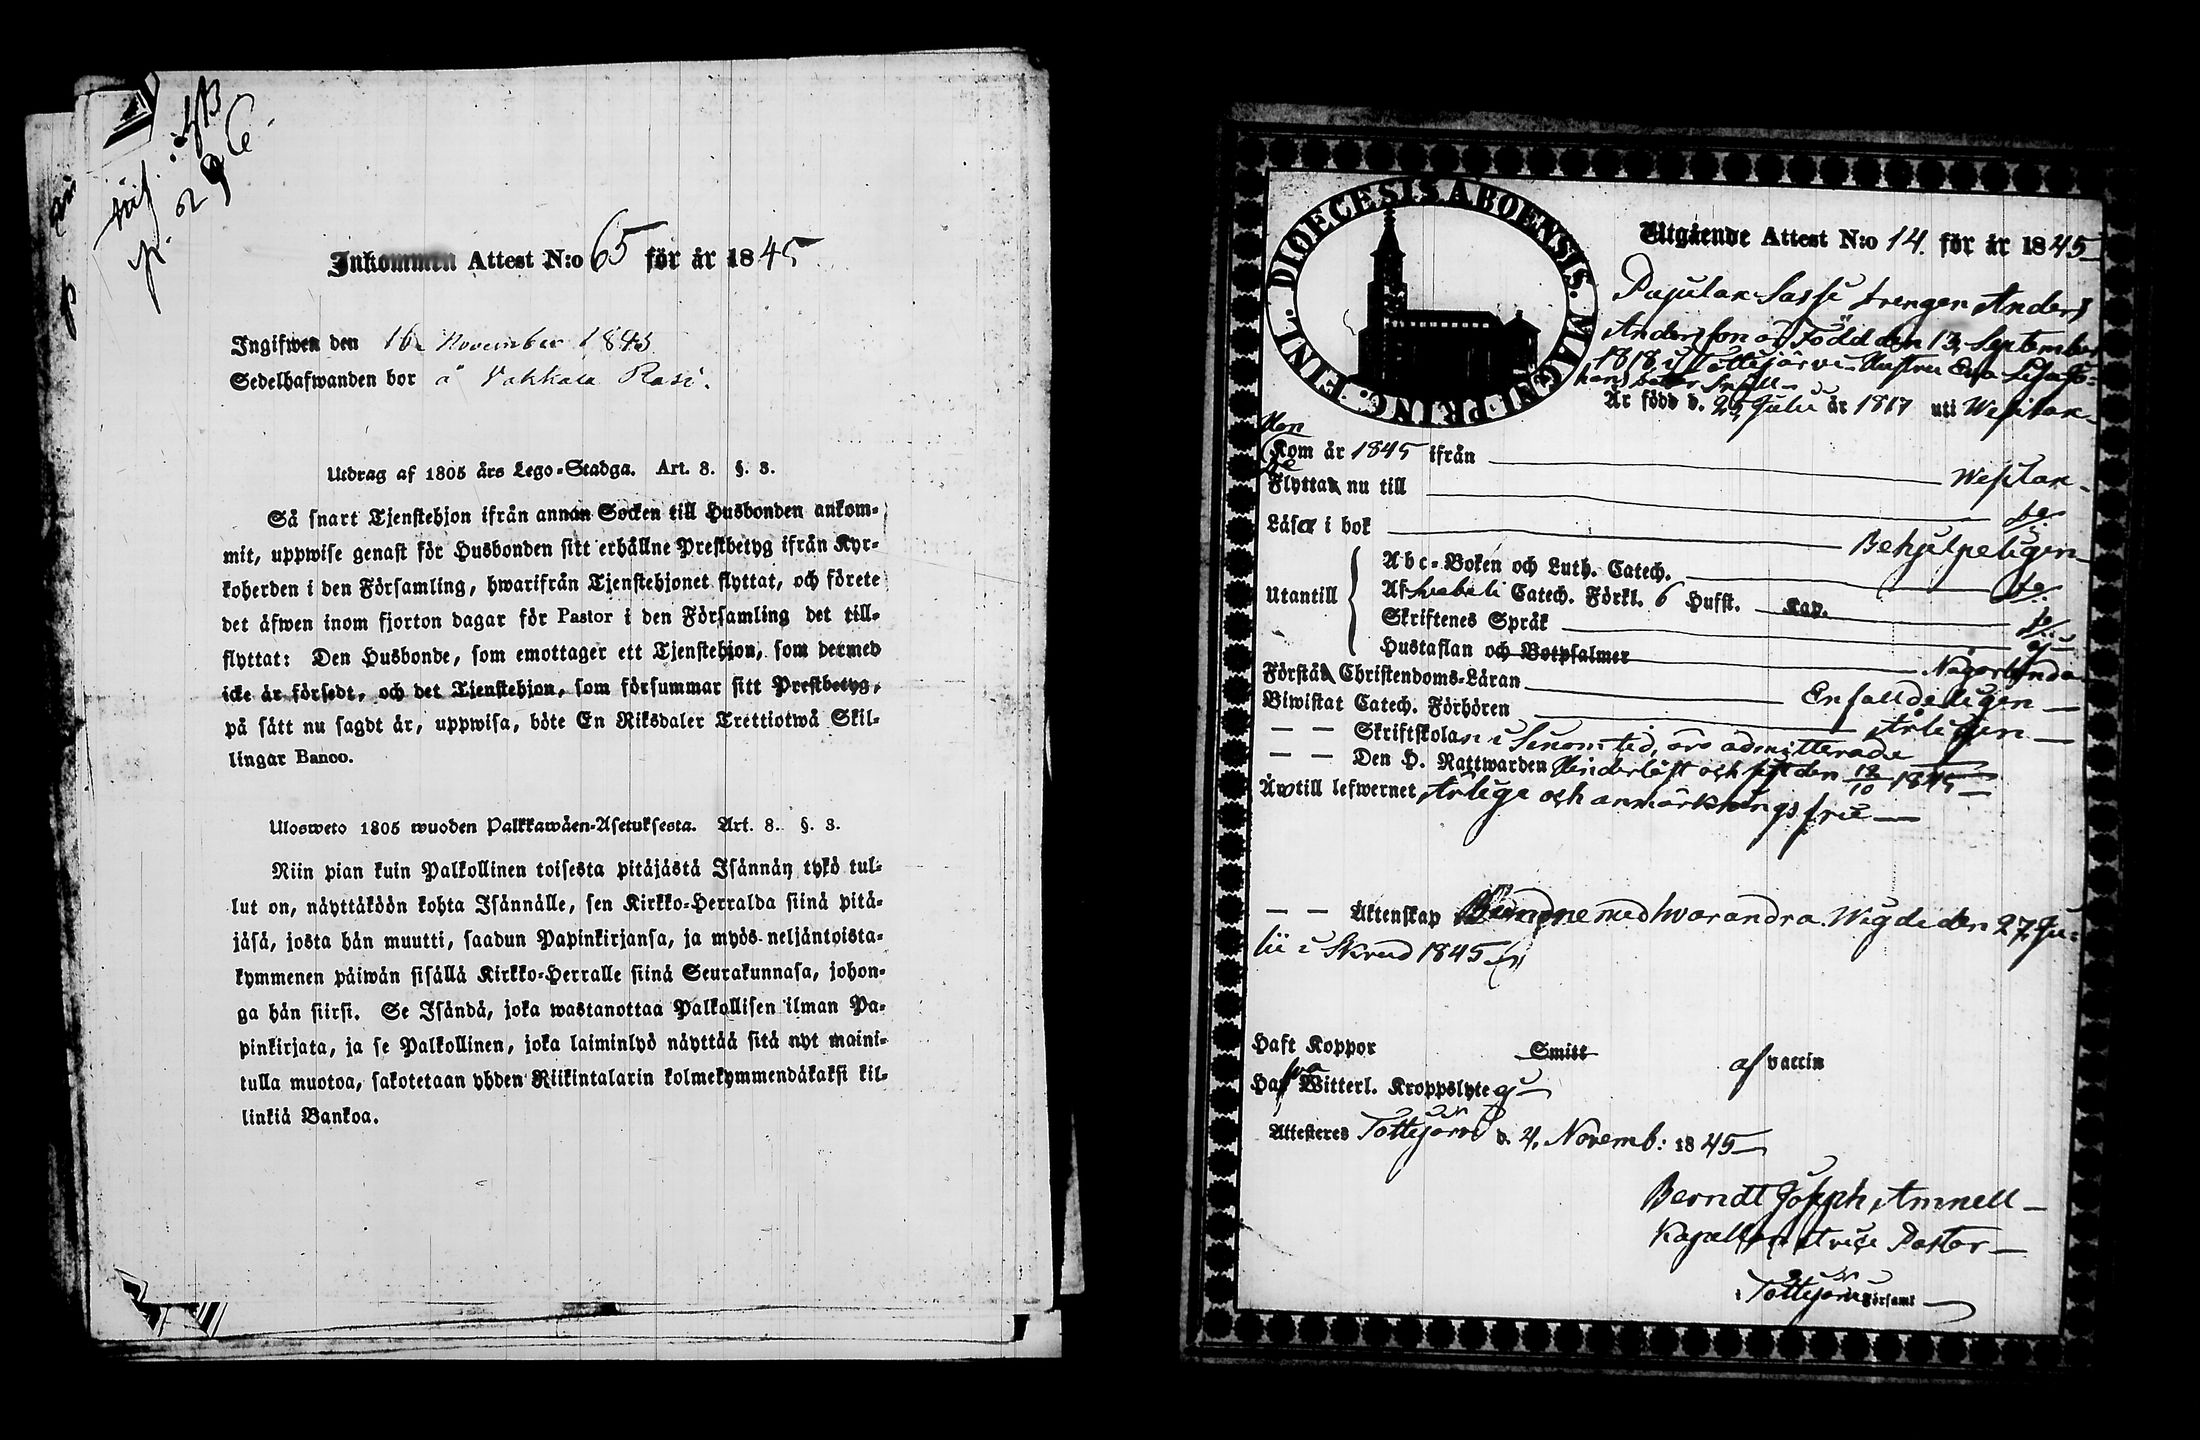 296
Inkommen Attest N:o 65 för år 1845
Ingifwen den 16 November 1845
Sedelhafwanden bor å Vakkala Rasi.
Utdrag af 1805 års Lego-Stadga. Art. 8. §. 3.
Så snart Tjenstehjon ifrån annan Socken till Husbonden ankom-
mit, uppwise genast för Husbonden sitt erhållne Prestbetyg ifrån Kyr-
koherden i den Församling, hwarifrån Tjenstehjonet flyttat, och förete
det äfwen inom fjorton dagar för Pastor i den Församling det till-
flyttat: Den Husbonde, som emottager ett Tjenstehjon, som dermed
icke är försedt, och det Tjenstehjon, som försummar sitt Prestbetyg,
på sätt nu sagdt är, uppwisa, böte En Riksdaler Trettiotwå Skil-
lingar Banco.
Ulosweto 1805 wuoden Palkkawäen-Asetuksesta. Art. 8. §. 3.
Niin pian kuin Palkollinen toisesta pitäjästä Isännän tykö tul-
lut on, näyttäköön kohta Isännälle, sen Kirkko-Herralda siinä pitä-
jäsä, josta hän muutti, saadun Papinkirjansa, ja myös neljäntoista-
kymmenen päiwän sisällä Kirkko-Herralle siinä Seurakunnasa, johon-
ga hän siirsi. Se Isändä, joka wastanottaa Palkollisen ilman Pa-
pinkirjata, ja se Palkollinen, joka laiminlyö näyttää sitä nyt maini-
tulla muotoa, sakotetaan yhden Riikintalarin kolmekymmendäkaksi kil-
linkiä Bankoa.
DIOECESIS ABOENSIS. MAGNI PRINC. FINL.
Utgående Attest N:o 14. för år 1845
Pajulax Sassi drengen Anders
Andersson är Född den 13 September
1818 i Tottijärvi Hustru Eva Lisa Jo-
hans dotter
Är född d. 29 Julii år 1817 uti Wesilax
Hon
Kom år 1845 ifrån Wesilax
Flytta nu till do
Läsa i bok Behjelpeligen
Abc-Boken och Luth. Catech. do
Utantill Af Svebeli Catech. Förkl. 6 Hufst. Kap. do
Skriftenes Språk ej
Hustaflan och Botpsalmer Någorlunda
Förstå Christendoms-Läran Enfalldeligen
Biwistat Catech. Förhören Årligen
— — Skriftskolan i Sinom tid, äro admitterade
— — Den H. Nattwarden Hinderlöst och sist den 18/10 1845
Äro till lefwernet Ärlige och anmärkningsfrie
— — Äktenskap Bundne med hvarandra. Wigde den 27 Ju-
lii i Skrud 1845
Haft Koppor Smitt af vaccin
Hafva Witterl. Kroppslyte ej
Attesteres Tottijärvi d. 4. Novemb: 1845
Berndt Joseph Amnell
Kapellan et vice Pastor
i Tottijärvi Församl